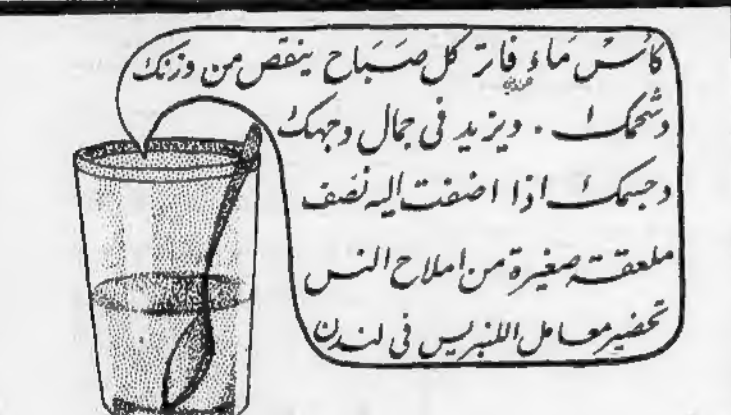 كأسُ مَاءٍ فاتر كل صَبَاح ينقص من وزنك
وشحمك . ويزيد في جمال وجهك
وجسمك اذا اضفت اليه نصف
ملعقة صغيرة من املاح النس
تحضير معامل اللنبريس في لندن